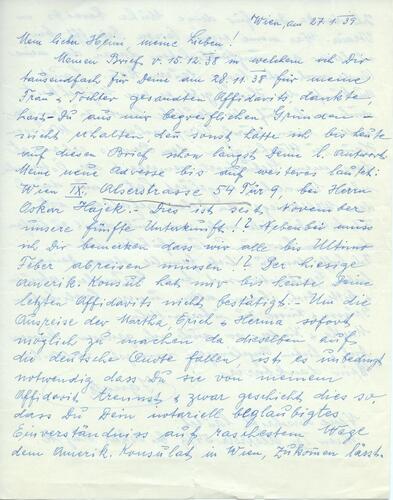 Wien, am 27.1.39
Mein lieber Heini, meine Lieben!
Meinen Brief v. 15.12.38 in welchem ich Dir
tausendfach für Deine am 28.11.38 für meine
Frau & Tochter gesandten Affidavits, dankte,
hast Du aus mir begreiflichen Gründen -
nicht erhalten den sonst hätte ich bis heute
auf diesen Brief schon längst Deine l. Antwort.
Meine neue Adresse bis auf weiteres lautet:
Wien IX, Alserstrasse 54 Tür 9, bei Herrn
Oskar Hajek. - Dies ist seit November
unsere fünfte Unterkunft!? Nebenbei muss
ich Dir bemerken dass wir alle bis Ultimo
Feber abreisen müssen!? Der hiesige
Amerik. Konsul hat mir bis heute Deine
letzten Affidavits nicht bestätigt. - Um die
Ausreise der Martha, Erich & Herma sofort
möglich zu machen da dieselben auf
die deutsche Quote fallen, ist es unbedingt
notwendig dass Du sie von meinem
Affidavit trennst & zwar geschieht dies so,
dass Du Dein notariell beglaubigtes
Einverständniss auf raschestem Wege
dem Amerik. Konsulat in Wien, zukommen lässt.